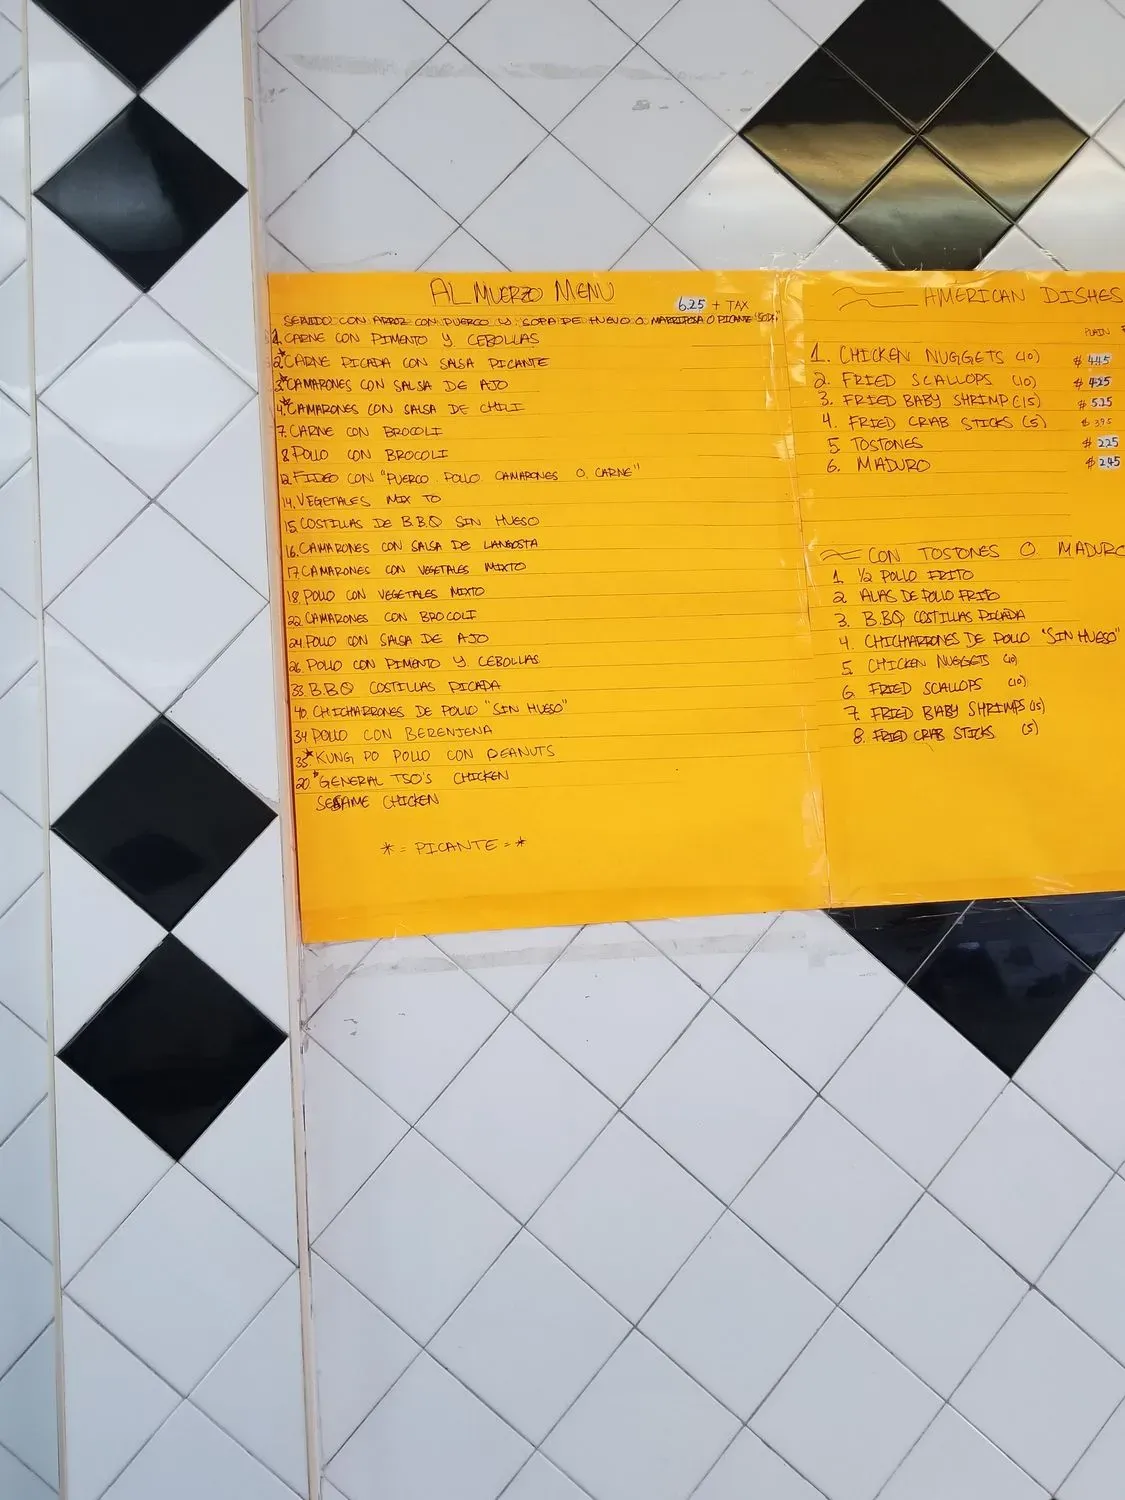 ALMUERZO MENU
6.25 + TAX
SERVIDO CON ARROZ CON PUERCO Y SOPA DE HUEVO O MARIPOSA O PICANTE "SODA"
1. CARNE CON PIMENTO Y CEBOLLAS
2.* CARNE PICADA CON SALSA PICANTE
3.* CAMARONES CON SALSA DE AJO
4.* CAMARONES CON SALSA DE CHILI
7. CARNE CON BROCOLI
8. POLLO CON BROCOLI
12. FIDEO CON "PUERCO. POLLO. CAMARONES O. CARNE"
14. VEGETALES MIX TO
15. COSTILLAS DE B.B.Q SIN HUESO
16. CAMARONES CON SALSA DE LANGOSTA
17. CAMARONES CON VEGETALES MIXTO
18. POLLO CON VEGETALES MIXTO
22. CAMARONES CON BROCOLI
24. POLLO CON SALSA DE AJO
26. POLLO CON PIMENTO Y CEBOLLAS
33. B.B.Q COSTILLAS PICADA
40. CHICHARRONES DE POLLO "SIN HUESO"
34 POLLO CON BERENJENA
35.* KUNG PO POLLO CON PEANUTS
20.* GENERAL TSO'S CHICKEN
SESAME CHICKEN
* = PICANTE = *
AMERICAN DISHES
PLAIN
1. CHICKEN NUGGETS (10) $ 4.45
2. FRIED SCALLOPS (10) $ 4.25
3. FRIED BABY SHRIMP (15) $ 5.25
4. FRIED CRAB STICKS (5) $ 3.95
5. TOSTONES $ 2.25
6. MADURO $ 2.45
CON TOSTONES O. MADURO
1. 1/2 POLLO FRITO
2. ALAS DE POLLO FRITO
3. B.B.Q COSTILLAS PICADA
4. CHICHARRONES DE POLLO "SIN HUESO"
5. CHICKEN NUGGETS (10)
6. FRIED SCALLOPS (10)
7. FRIED BABY SHRIMPS (15)
8. FRIED CRAB STICKS (5)